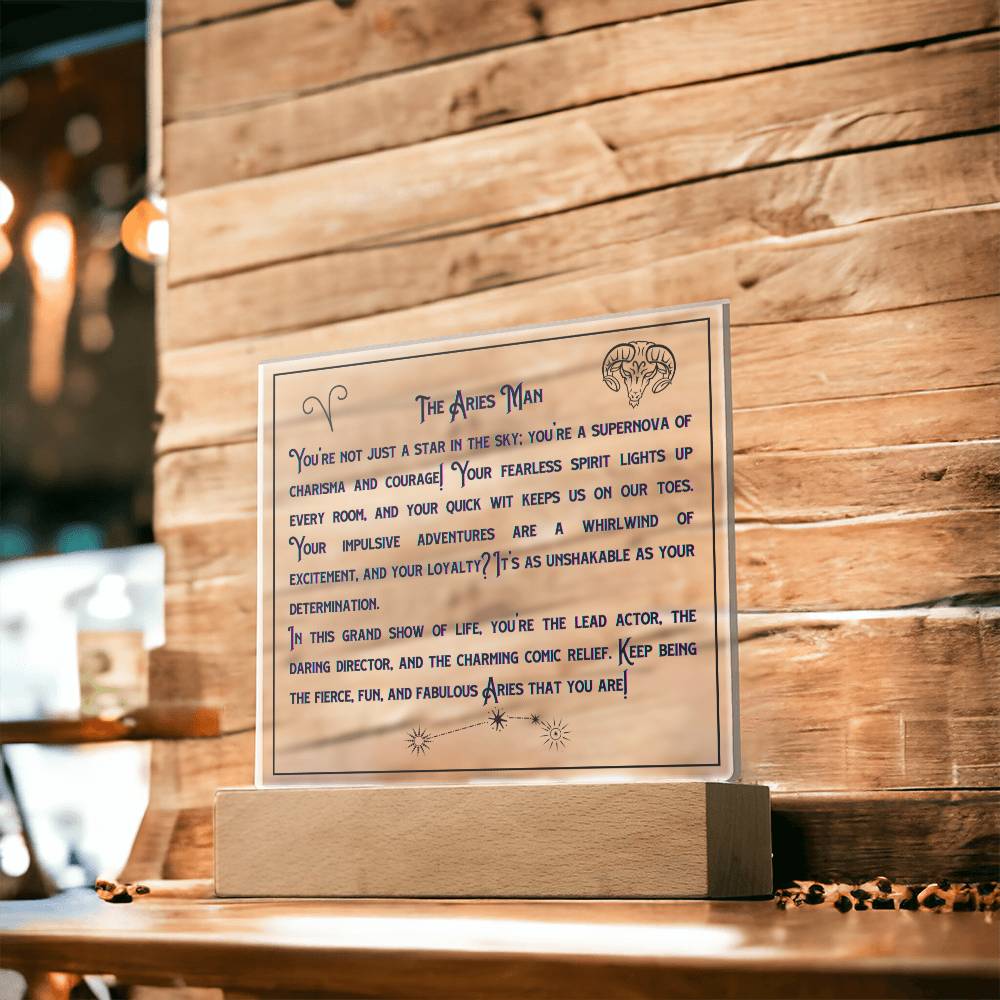 The Aries Man
You're not just a star in the sky; you're a supernova of
charisma and courage! Your fearless spirit lights up
every room, and your quick wit keeps us on our toes.
Your impulsive adventures are a whirlwind of
excitement, and your loyalty? It's as unshakable as your
determination.
In this grand show of life, you're the lead actor, the
daring director, and the charming comic relief. Keep being
the fierce, fun, and fabulous Aries that you are!